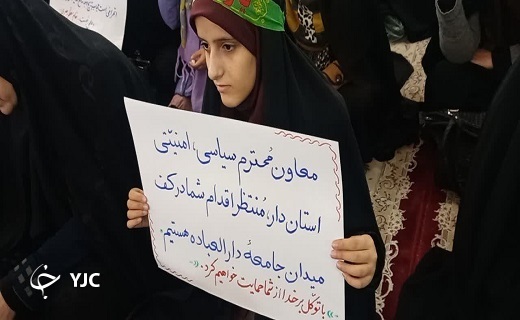 معاون مُحترم سیاسی، امنیتّی
استان دار، مُنتظر اقدام شما در کف
میدان جامعهٔ دارالعباده هستیم.
«با توکّل بر خدا از شما حمایت خواهیم کرد.»
YJC